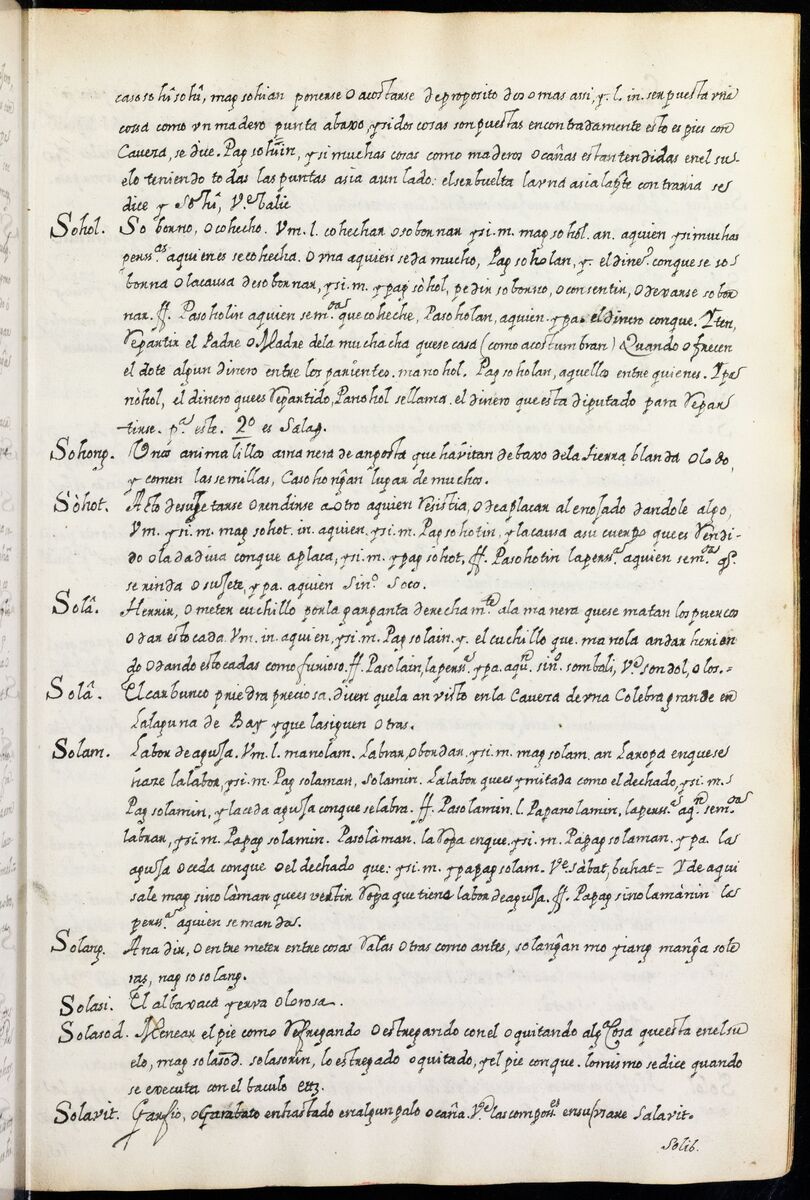 caso sohîsohî, mag sohian ponerse o acostarse de proposito dos o mas assi, y. l. in. ser puesta vna
cossa como vn madero punta abaxo, y si dos cosas son puestas encontradamente esto es pies con
Caveza, se dice. Pag sohîin, y si muchas cosas como maderos o cañas estan tendidas en el su-
elo teniendo todas las puntas asia a un lado: el ser buelta la vna asia la pte contraria se
dice y Sohî, Ve balic
Sohol. So borno, o cohecho. Vm. l. cohechar o sobornar y si. m. mag sohol. an. a quien y si muchas
perss.as a quienes se cohecha. O vna a quien se da mucho, Pag soholan, y. el diner.o con que se so-
borna o la causa de sobornar, y si. m. y pag sòhol, pedir soborno, o consentir, o dexarse sobor
nar. ff. Pasoholin a quien sem.oas que coheche, Pasoholan, a quien. y pa. el dinero con que. Yten,
Repartir el Padre o Madre de la muchacha que se casa (como acostumbran) Quando ofrecen
el dote algun dinero entre los parientes. manohol. Pag soholan, aquellos entre quienes. Ypa
nòhol, el dinero que es Repartido, Panohol se llama. el dinero que esta diputado para Repar
tirse. pa este. 2o es Salag.
Sohong. Unos animalillos a manera de angosta que havitan debaxo de la tierra blanda o lodo,
y comen las semillas, Casohongan lugar de muchos.
Sòhot. Acto de sugetarse o rendirse a otro a quien resistia, o de aplacar al enojado dandole algo,
Vm. y si. m. mag sohot. in. a quien, y si. m. Pag sohotin, y la causa a su cuerpo que es Rendi-
do o la dadiva con que aplaca, y si. m. y pag sohot, ff. Pasohotin la pers.a a quien sem.oas qe.
se rinda o sujete, y pa. a quien Sin.o Soco.
Solâ. Herrir, o meter cuchillo por la garganta derecham.te a la manera que se matan los puercos
o dar estocada. Vm. in. a quien, y si. m. Pag solain. y. el cuchillo que. manola andar herien
do o dando estocadas como furioso. ff. Pasolain, la pers.a y pa. aqn. sin.o sombali, Ve sondol, o los.=
Solâ. El carbunco priedra preciosa. dicen que la an visto en la Caveza de vna Colebra grande en
la laguna de Bay y que la siguen otras.
Solam. Labor de aguja. Vm. l. manolam. Labrar, o bordar, y si. m. mag solam. an La ropa en que se
haze la labor, y si. m. Pag solaman, solamin. La labor que es ymitada como el dechado, y si. m.
Pag solamin, y la ceda aguja con que se labra. ff. Pasolamin. l. Papanolamin, la pers.a aqn sem.oas
labrar, y si. m. Papag solamin. Pasolàman. la Ropa en que, y si. m. Papag solaman. y pa. la
aguja o ceda con que o el dechado que: y si. m. y papag solam. Ve sàbat, buhat= Y de aqui
sale mag sinolàman que es vestir Ropa que tiene labor de aguja. ff. Papag sinolamànin la
perss.a a quien se manda.
Solang. Anadir, o entre meter entre cosas Ralas otras como antes, solangan mo yiang manga sole
ras, nag so solang.
Solasi. El albaxaca yerva olorosa.
Solasod. Menear el pie como Refregando o estregando con el o quitando alg.a Cosa que esta en el su
elo, mag solasod. solasorin, lo estregado o quitado, y el pie con que. lo mismo se dice quando
se executa con el baculo etta.
Solavit. Garfio, o Garabato enhastado en algun palo o caña. Ve las compos.es en su frase Salavit.
Solib.